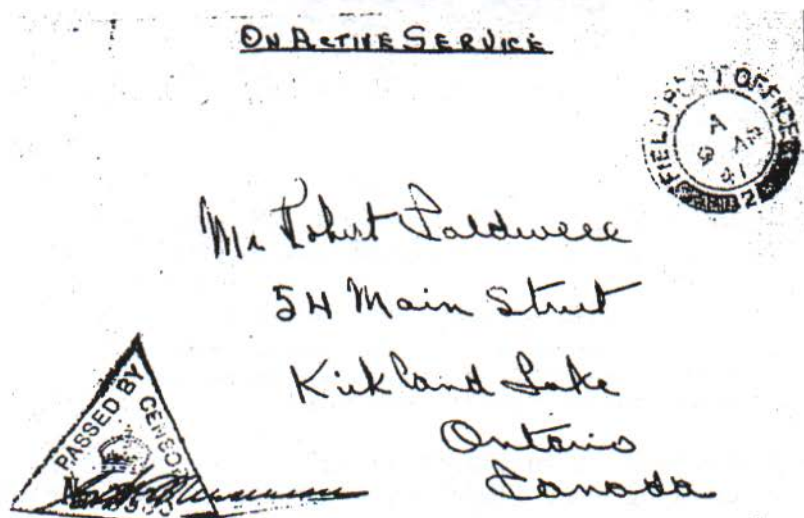 ON ACTIVE SERVICE
FIELD POST OFFICE
A
9 AP
41
Mr Robert Caldwell
54 Main Street
Kirkland Lake
Ontario
Canada
PASSED BY CENSOR
No